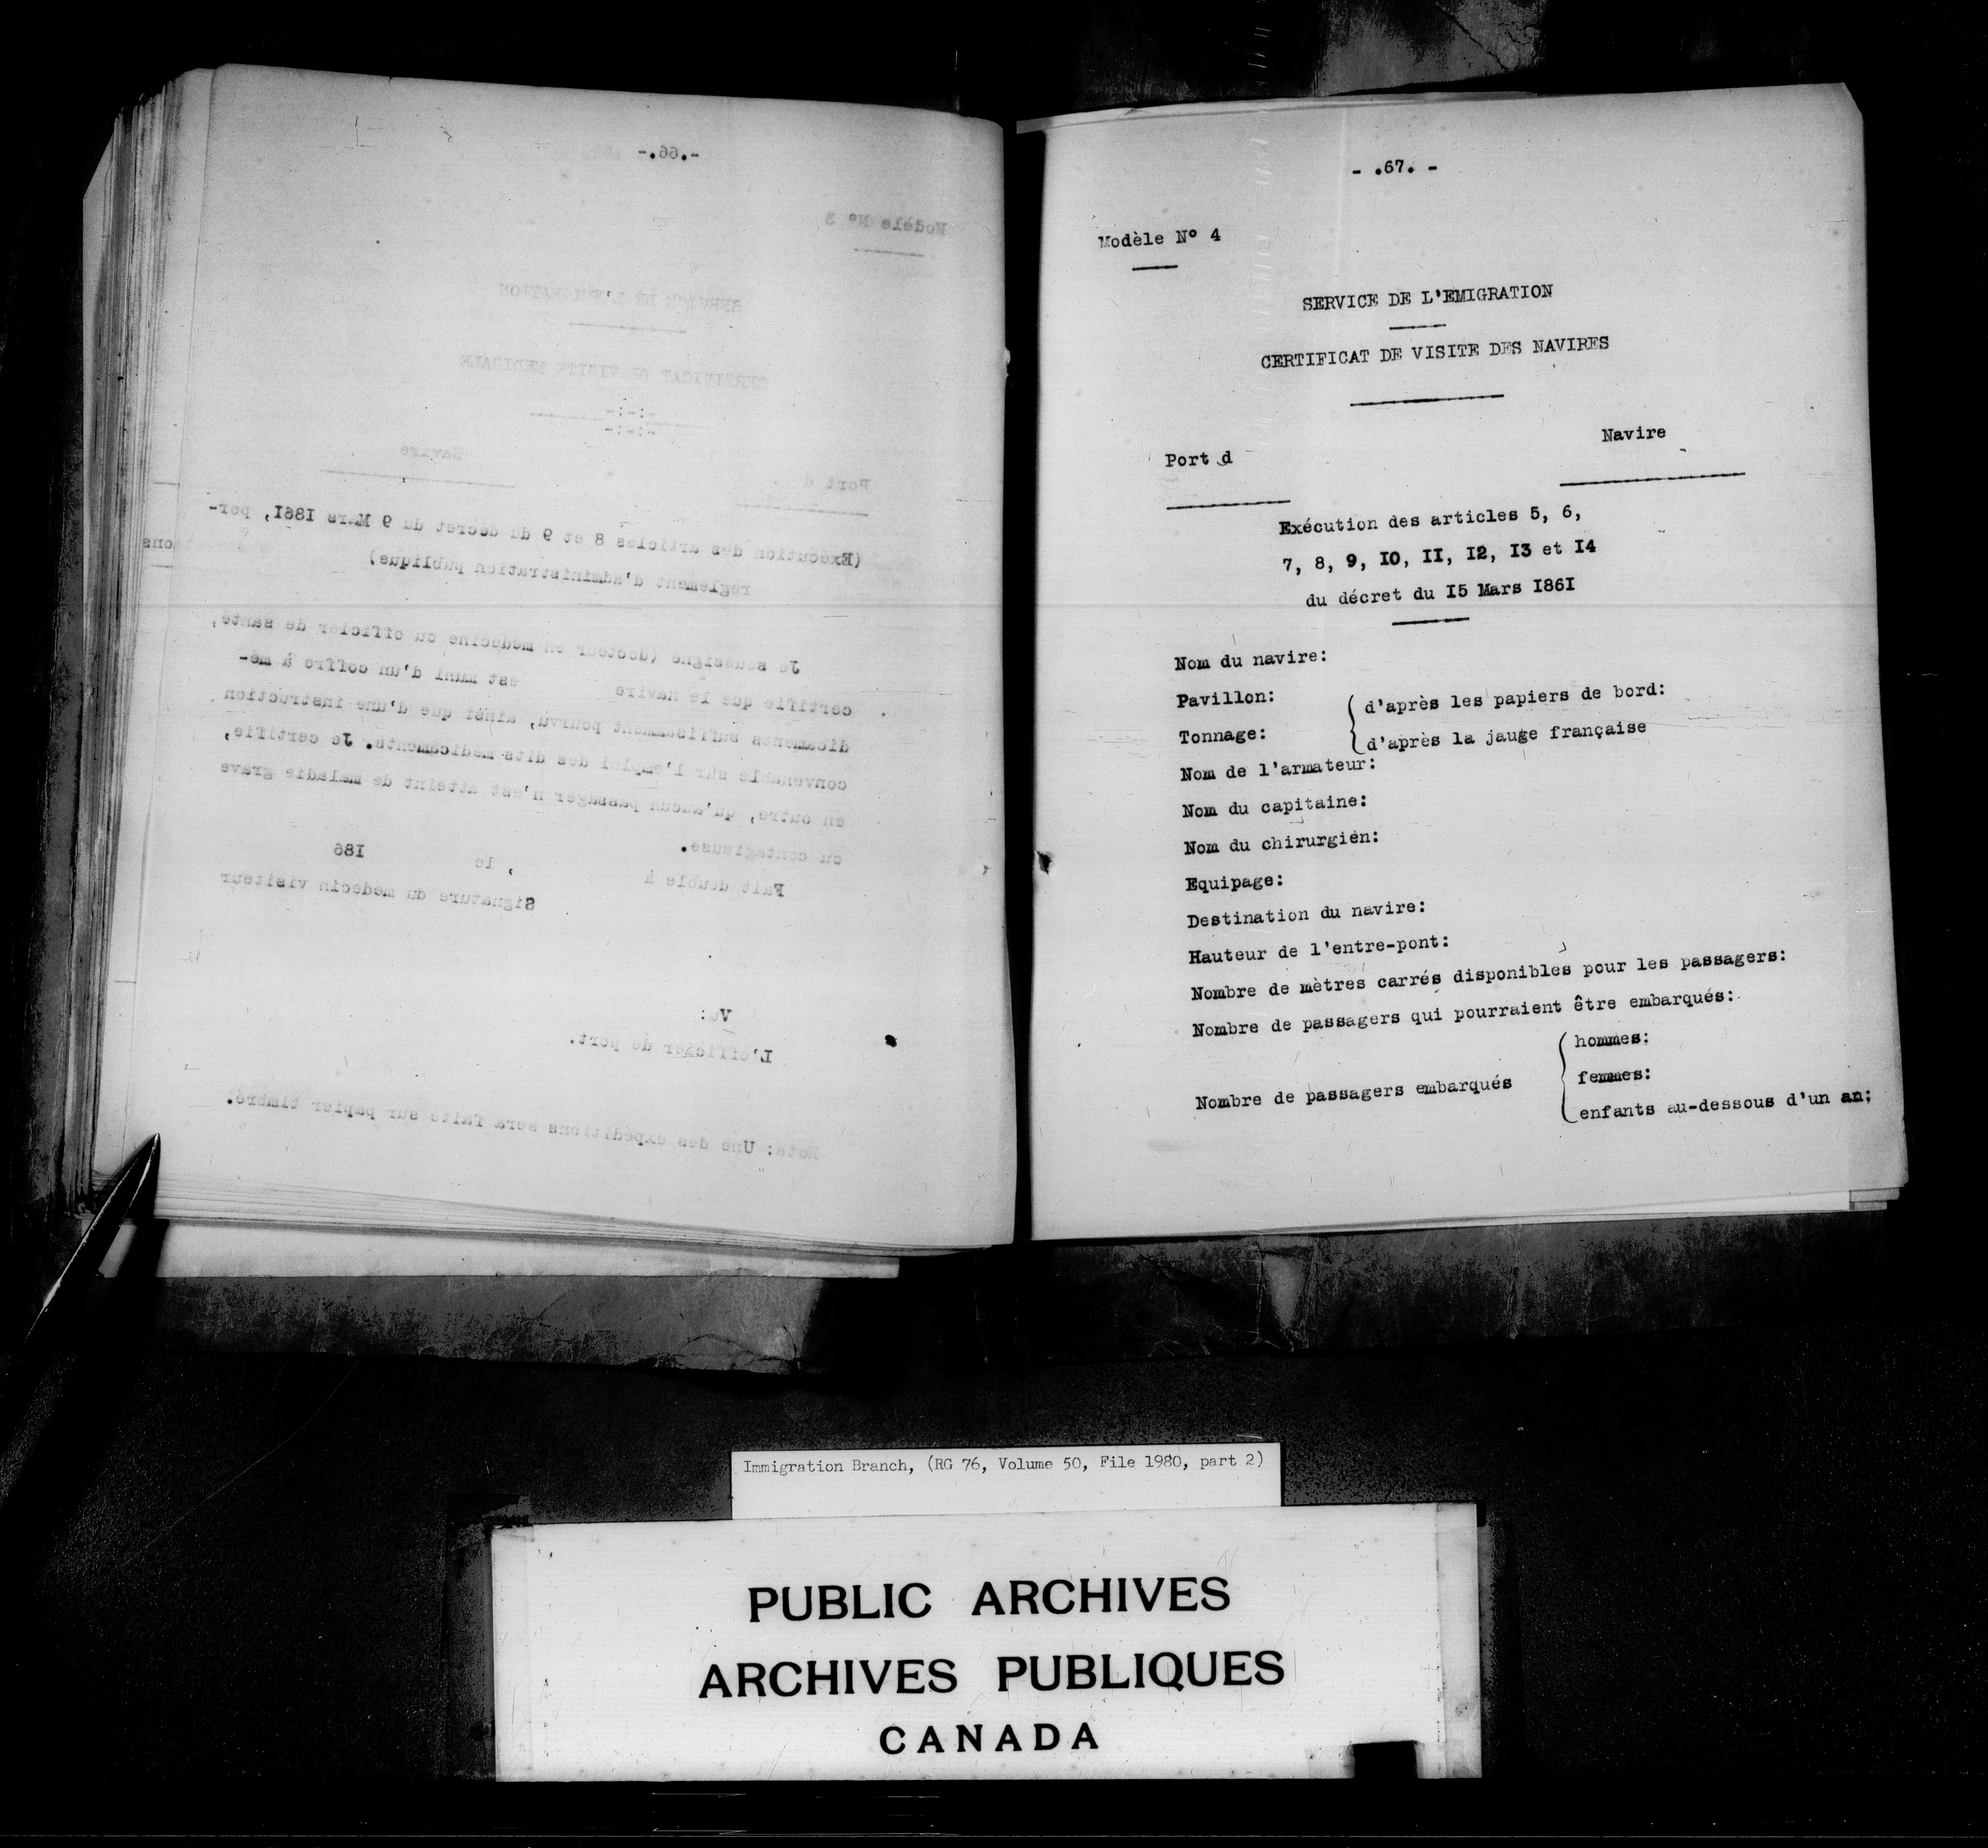 -.66.-
Modèle Nº 3
SERVICE DE L'EMIGRATION
CERTIFICAT DE VISITE MEDICALE
-:-:-
-:-:-
Port d
Navire
(Exécution des articles 8 et 9 du décret du 9 Mars I86I, por-
règlement d'administration publique)
Je soussigné (docteur en médecine ou officier de santé,
certifie que le navire est muni d'un coffre à mé-
dicaments suffisamment pourvu, ainsi que d'une instruction
convenable sur l'emploi des dits médicaments. Je certifie,
en outre, qu'aucun passager n'est atteint de maladie grave
ou contagieuse.
Fait double à , le I86
Signature du médecin visiteur
Vu:
L'officier de port.
Nota: Une des expéditions sera faite sur papier timbré.
- .67. -
Modèle Nº 4
SERVICE DE L'EMIGRATION
CERTIFICAT DE VISITE DES NAVIRES
Navire
Port d
Exécution des articles 5, 6,
7, 8, 9, IO, II, I2, I3 et I4
du décret du I5 Mars I86I
Nom du navire:
Pavillon:
Tonnage: d'après les papiers de bord:
d'après la jauge française
Nom de l'armateur:
Nom du capitaine:
Nom du chirurgien:
Equipage:
Destination du navire:
Hauteur de l'entre-pont:
Nombre de mètres carrés disponibles pour les passagers:
Nombre de passagers qui pourraient être embarqués:
Nombre de passagers embarqués
hommes:
femmes:
enfants au-dessous d'un an;
Immigration Branch, (RG 76, Volume 50, File 1980, part 2)
PUBLIC ARCHIVES
ARCHIVES PUBLIQUES
CANADA